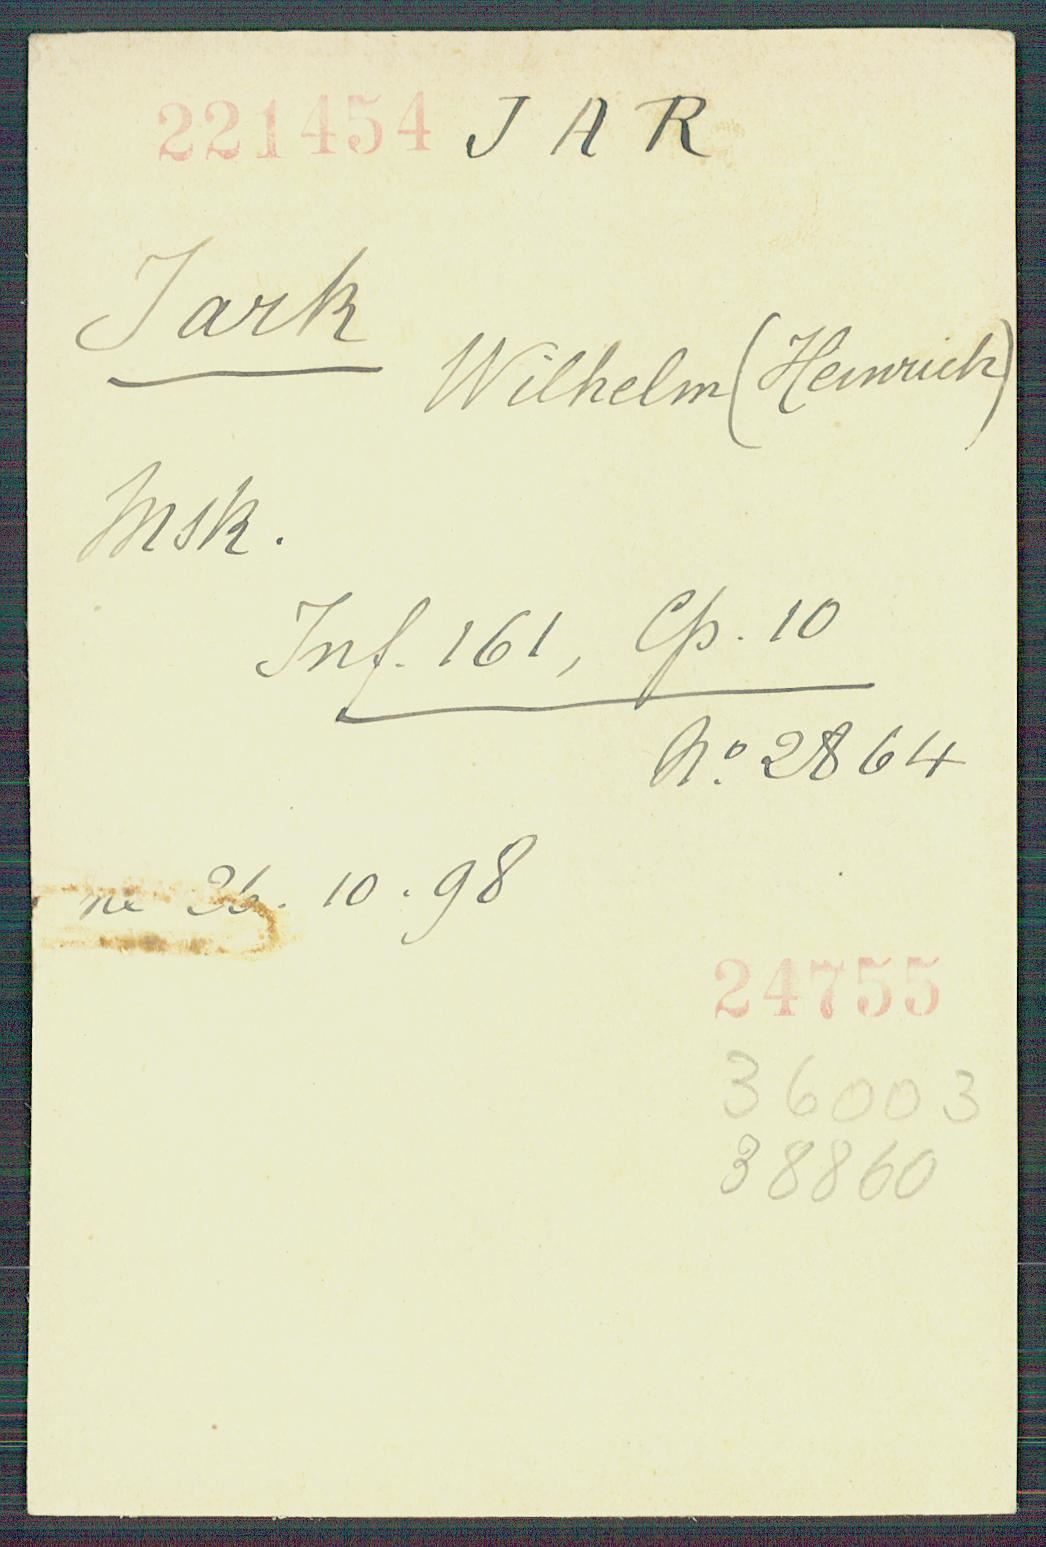 221454 J A R
Jark
Wilhelm (Heinrich)
Msk.
Inf. 161, Cp. 10
No. 2864
né 26. 10. 98
24755
36003
38860